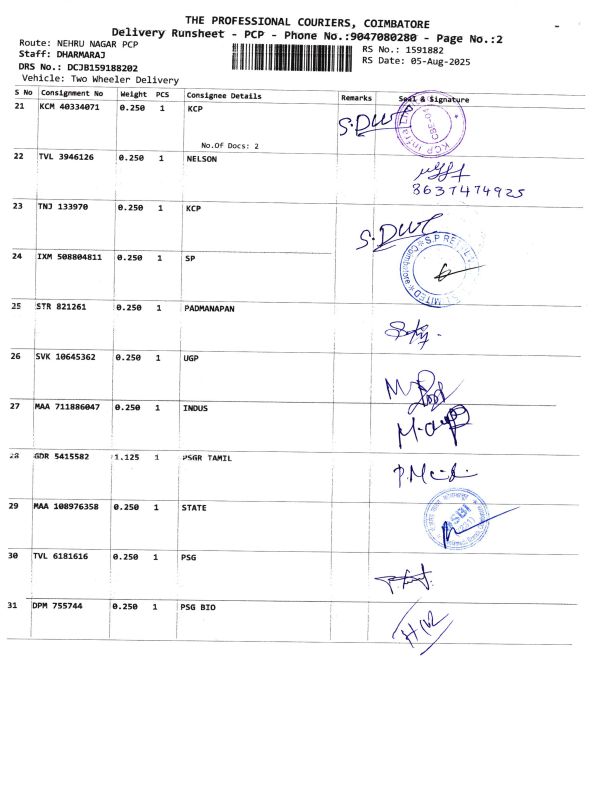 THE PROFESSIONAL COURIERS, COIMBATORE
Delivery Runsheet - PCP - Phone No.:9047080280 - Page No.:2
Route: NEHRU NAGAR PCP
RS No.: 1591882
Staff: DHARMARAJ
RS Date: 05-Aug-2025
DRS No.: DCJB159188202
Vehicle: Two Wheeler Delivery
S No Consignment No Weight PCS Consignee Details Remarks Seal & Signature
21 KCM 40334071 0.250 1 KCP
S.DW
No.Of Docs: 2
22 TVL 3946126 0.250 1 NELSON
8637474925
23 TNJ 133970 0.250 1 KCP
24 IXM 508804811 0.250 1 SP
25 STR 821261 0.250 1 PADMANAPAN
26 SVK 10645362 0.250 1 UGP
27 MAA 711886047 0.250 1 INDUS
28 GDR 5415582 1.125 1 PSGR TAMIL
29 MAA 108976358 0.250 1 STATE
SBI
30 TVL 6181616 0.250 1 PSG
31 DPM 755744 0.250 1 PSG BIO